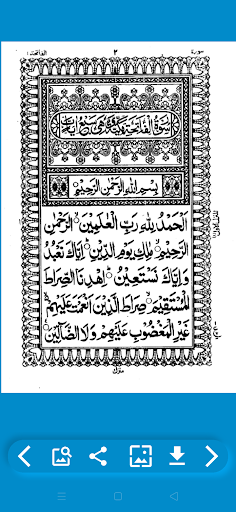 سورة ٢ الفاتحة ١
سُوْرَةُ الْفَاتِحَةِ مَكِّيَّةٌ وَّهِيَ سَبْعُ اٰيَاتٍ
بِسْمِ اللّٰهِ الرَّحْمٰنِ الرَّحِيْمِ
اَلْحَمْدُ لِلّٰهِ رَبِّ الْعٰلَمِيْنَ ۙ الرَّحْمٰنِ
الرَّحِيْمِ ۙ مٰلِكِ يَوْمِ الدِّيْنِ ؕ اِيَّاكَ نَعْبُدُ
وَاِيَّاكَ نَسْتَعِيْنُ ؕ اِهْدِنَا الصِّرَاطَ
الْمُسْتَقِيْمَ ۙ صِرَاطَ الَّذِيْنَ اَنْعَمْتَ عَلَيْهِمْ
غَيْرِ الْمَغْضُوْبِ عَلَيْهِمْ وَلَا الضَّآلِّيْنَ
منزل